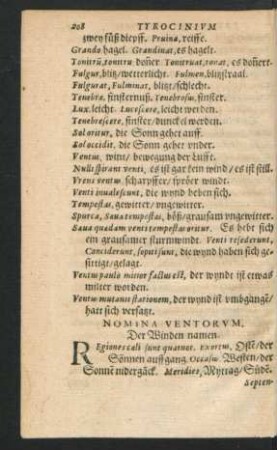 208 TYROCINIVM
zwey füß dieff. Pruina, reiffe.
Grando hagel. Grandinat, es hagelt.
Tonitrũ, tonitru doñer. Tonitruat, tonat, es doñert.
Fulgur, blitz/wetterlicht. Fulmen, blitzstraal.
Fulgurat, Fulminat, blitzt/schlecht.
Tenebræ, finsternuß. Tenebrosus, finster.
Lux, leicht. Lucescere, leicht werden.
Tenebrescere, finster/dunckel werden.
Sol oritur, die Sonn gehet auff.
Sol occidit, die Sonn gehet vnder.
Ventus, wint/bewegung der Lufft.
Nulli spirant venti, es ist gar kein wind/es ist still.
Vrens ventus, scharpffer/spröer windt.
Venti inualescunt, die wynd heben sich.
Tempestas, gewitter/vngewitter.
Spurca, Sæua tempestas, böß/grausam vngewitter.
Sæua quædam venti tempestas oritur. Es hebt sich
ein grausamer sturmwindt. Venti resederunt,
Considerunt, sopiti sunt, die wynd haben sich ge-
setzigt/gelägt.
Ventus paulo mitior factus est, der wyndt ist etwas
milter worden.
Ventus mutauit stationem, der wynd ist vmbgangẽ/
hatt sich versatzt.
NOMINA VENTORVM.
Der Winden namen.
REgiones cæli sunt quatuor. Exortus, Ostẽ/der
Sönnen auffgang. Occasus, Westen/der
Sonnẽ nidergäck. Meridies, Myttag/Sudẽ.
Septen-